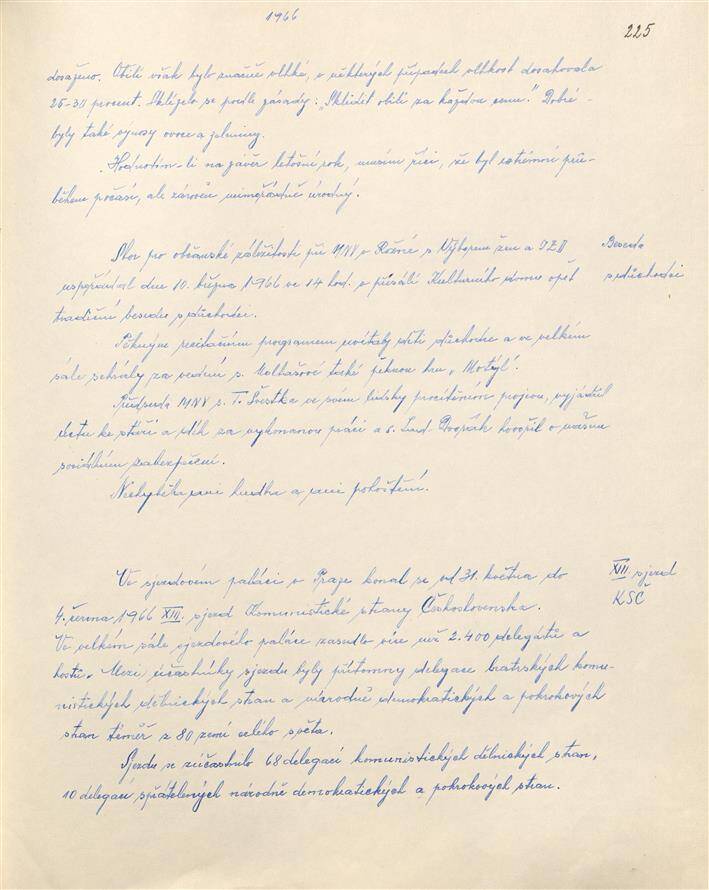 1966
225
dosaženo. Obilí však bylo značně vlhké, v některých případech vlhkost dosahovala
25-30 procent. Sklízelo se podle zásady: "Sklidit obilí za každou cenu." Dobré
byly také výnosy ovoce a zeleniny.
Hodnotím-li na závěr letošní rok, musím říci, že byl extrémní prů-
během počasí, ale zároveň mimořádně úrodný.
Sbor pro občanské záležitosti při MNV v Rožné s Výborem žen a JZD
uspořádal dne 10. března 1966 ve 14 hod. v přísálí Kulturního domu opět
tradiční besedu s důchodci.
Beseda
s důchodci
Pěkným recitačním programem uvítaly děti důchodce a ve velkém
sále sehrály za vedení s. také pěknou hru "Motýl".
Předseda MNV s. T. Švestka ve svém lidsky procítěném projevu, vyjádřil
úctu ke stáří a dík za vykonanou práci a s. Lud. Dvořák hovořil o našem
sociálním zabezpečení.
Nechyběla ani hudba a ani pohoštění.
Ve sjezdovém paláci v Praze konal se od 31. května do
4. června 1966 XIII. sjezd Komunistické strany Československa.
XIII sjezd
KSČ
Ve velkém sále sjezdového paláce zasedlo více než 2.400 delegátů a
hostů. Mezi účastníky sjezdu byly přítomny delegace bratrských komu-
nistických dělnických stran a národně demokratických a pokrokových
stran téměř z 80 zemí celého světa.
Sjezdu se zúčastnilo 68 delegací komunistických dělnických stran,
10 delegací spřátelených národně demokratických a pokrokových stran.